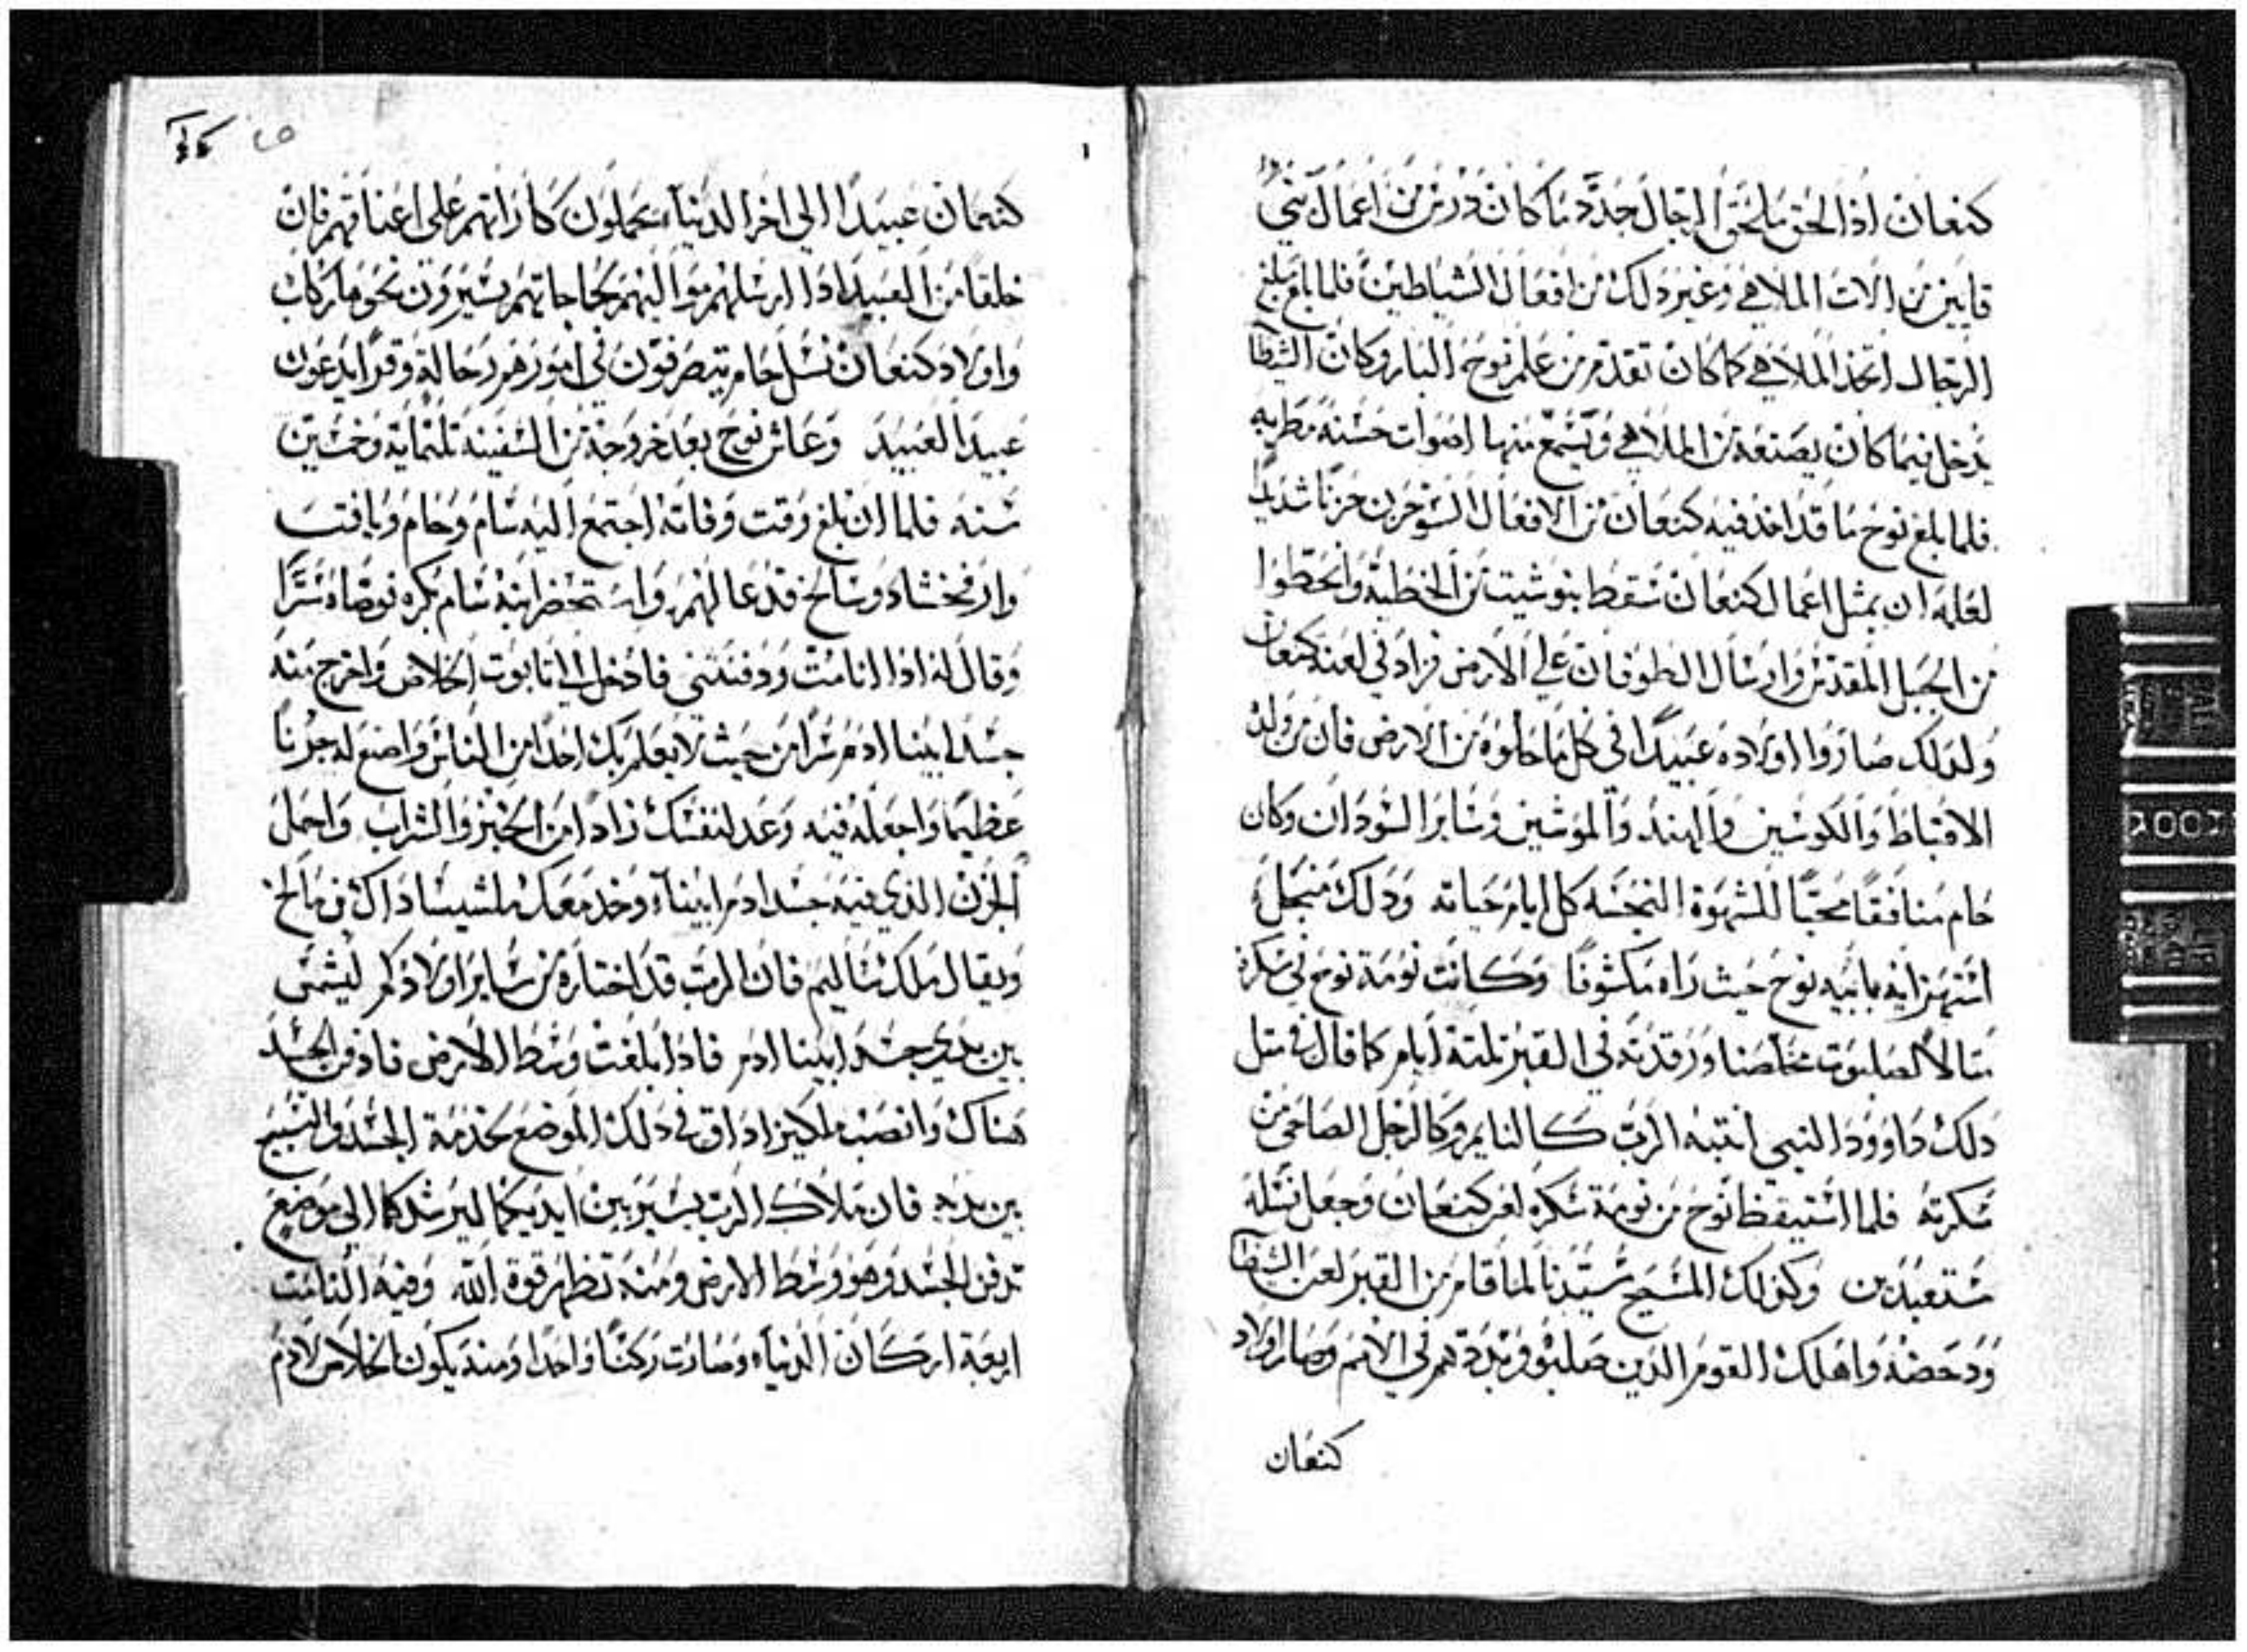 كنعان اذا لحق مالحق الرجال جدد ما كان درس من اعمال بني
قايين من الات الملاهي وغير دلك من افعال الشياطين فلما بلغ مبلغ
الرجال اتخذ الملاهي كما كان تقدم من علم نوح البار وكان الشيطا
يدخل فيما كان يصنعه من الملاهي ويسمع منها اصوات حسنه مطربه
فلما بلغ نوح ما قد اخذ فيه كنعان من الافعال السو حزن حزنا شديدا
لعلمه ان بمثل اعمال كنعان سقط بنو شيت من الخطية وانحطوا
من الجبل المقدس وارسال الطوفان علي الارض فزاد في لعنه كنعان
ولدلك صاروا اولاده عبيدا في كل ما حلوه من الارض فان من ولد
الاقباط والكوشين والهند والموسين وساير السودان وكان
حام منافقا محبا للشهوة النجسه كل ايام حياته ودلك من اجل
استهزايه بابيه نوح حيث راه مكشوفا وكانت نومة نوح في سكره
مثالا لصلبوت مخلصنا ورقدته في القبر تلتة ايام كما قال في مثل
دلك داوود النبي انتبه الرب كالنايم وكالرجل الصاحي من
سكرته فلما استيقظ نوح من نومة سكره لعن كنعان وجعل نسله
مستعبدين وكدلك المسيح سيدنا لما قام من القبر لعن الشيطا
ودحضه واهلك القوم الدين صلبوه وبددهم في الامم وصار اولاد
كنعان
كنعان عبيدا الي اخر الدنيا يحملون كاراتهم علي اعناقهم فان
خلقا من العبيد اذا ارسلهم مواليهم بحاجاتهم يسيرون نحو ما ركاب
واولاد كنعان نسل حام يتصرفون في امورهم رحالة وقد ايدعون
عبيد العبيد وعاش نوح بعد خروجه من السفينه تلتماية وخمسين
سنه فلما ان بلغ وقت وفاته اجتمع اليه سام وحام ويافت
وارفخشاد وسالخ فدعا لهم واستحضر ابنه سام بكره فوصاه سرا
وقال له اذا انا مت ودفنتني فادخل الي تابوت الخلاص واخرج منه
جسد ابينا ادم سرا من حيث لا يعلم بك احدا من الناس واصنع له جرنا
عظيما واجعله فيه وعد لنفسك زادا من الخبز والشراب واحمل
الجرن الذي فيه جسد ادم ابينا وخد معك ملشيساداك بن مالخ
ويقال ملك ساليم فان الرب قد اختاره من ساير اولادكم ليشمس
بين يدي جسد ابينا ادم فاذا بلغت وسط الارض فادفن الجسد
هناك وانصب ملكيزاداق في دلك الموضع بخدمة الجسد والتسبيح
بين يديه فان ملاك الرب يسير بين ايديكما ليرشدكما الي موضع
تدفن الجسد وهو وسط الارض ومنه تظهر قوة الله وفيه التامت
اربعة اركان الدنيا وصارت ركنا واحدا ومنه يكون الخلاص لادم